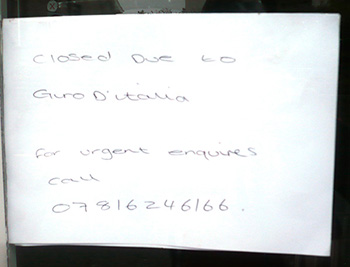 Closed Due to
Giro D'italia
for urgent enquires
call
07816246166.